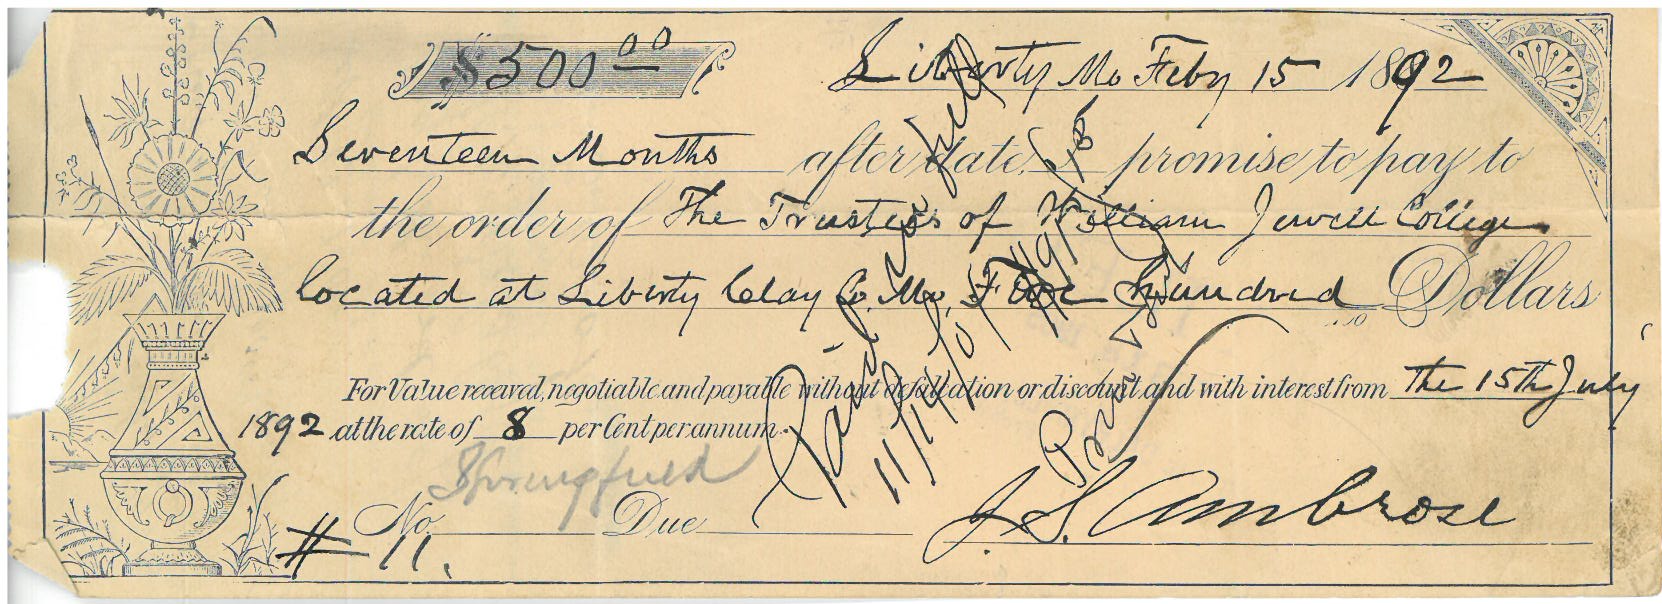 $500 00
Liberty Mo Feby 15 1892
Seventeen Months after date, I promise to pay to
the order of The Trustees of William Jewell College
located at Liberty Clay Co. Mo. Five hundred Dollars
For Value received, negotiable and payable without defalcation or discount and with interest from the 15th July
1892 at the rate of 8 per Cent per annum.
Springfield
No. Due
# 11.
J. S. Ambrose
Paid in full
11/14/01